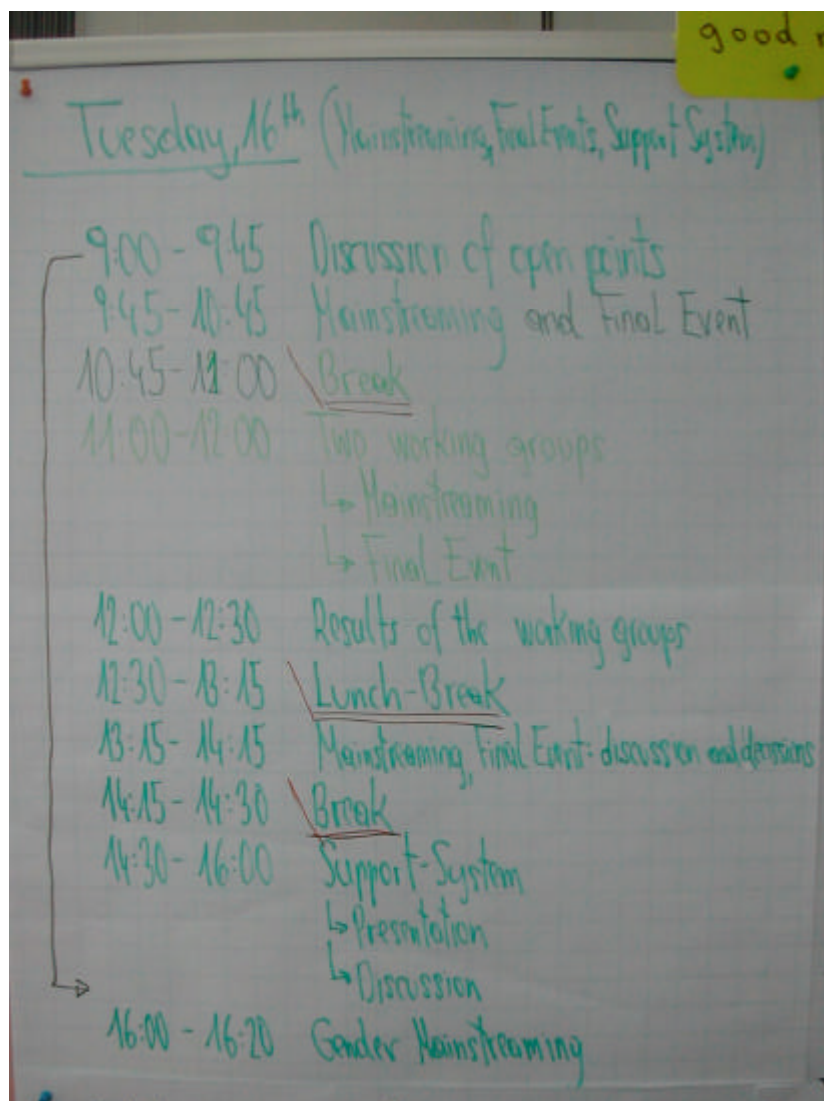 good
Tuesday, 16th (Mainstreaming, Final Events, Support System)
9:00 - 9:45 Discussion of open points
9:45 - 10:45 Mainstreaming and Final Event
10:45 - 11:00 Break
11:00 - 12:00 Two working groups
↳ Mainstreaming
↳ Final Event
12:00 - 12:30 Results of the working groups
12:30 - 13:15 Lunch-Break
13:15 - 14:15 Mainstreaming, Final Event: discussion and decisions
14:15 - 14:30 Break
14:30 - 16:00 Support-System
↳ Presentation
↳ Discussion
16:00 - 16:20 Gender Mainstreaming